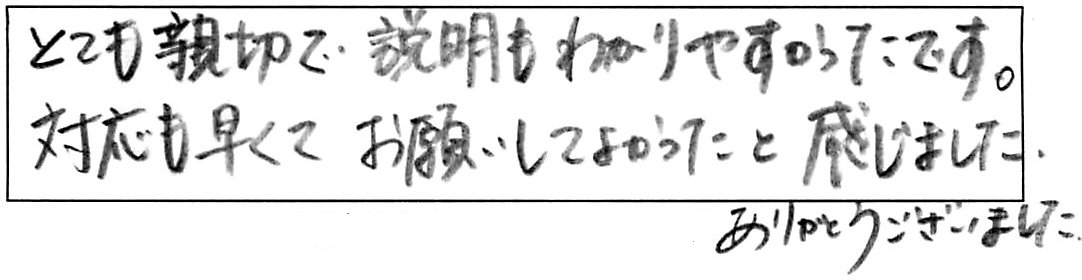 とても親切で、説明もわかりやすかったです。
対応も早くて お願いしてよかったと 感じました。
ありがとうございました。